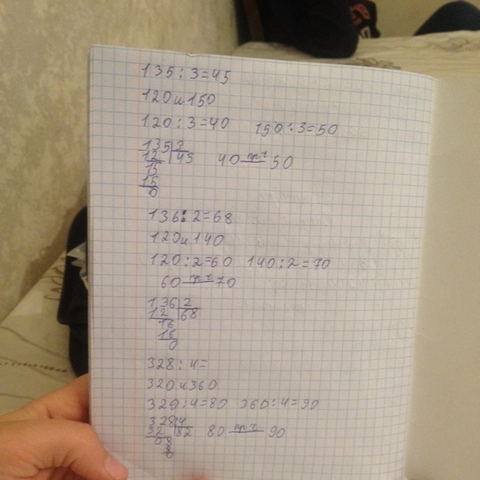 135 : 3 = 45
120 и 150
120 : 3 = 40 150 : 3 = 50
135 3
12 45 40 50
15
15
0
136 : 2 = 68
120 и 140
120 : 2 = 60 140 : 2 = 70
60 70
136 2
12 68
16
16
0
328 : 4 =
320 и 360
320 : 4 = 80 360 : 4 = 90
328 4
32 82 80 90
08
8
0